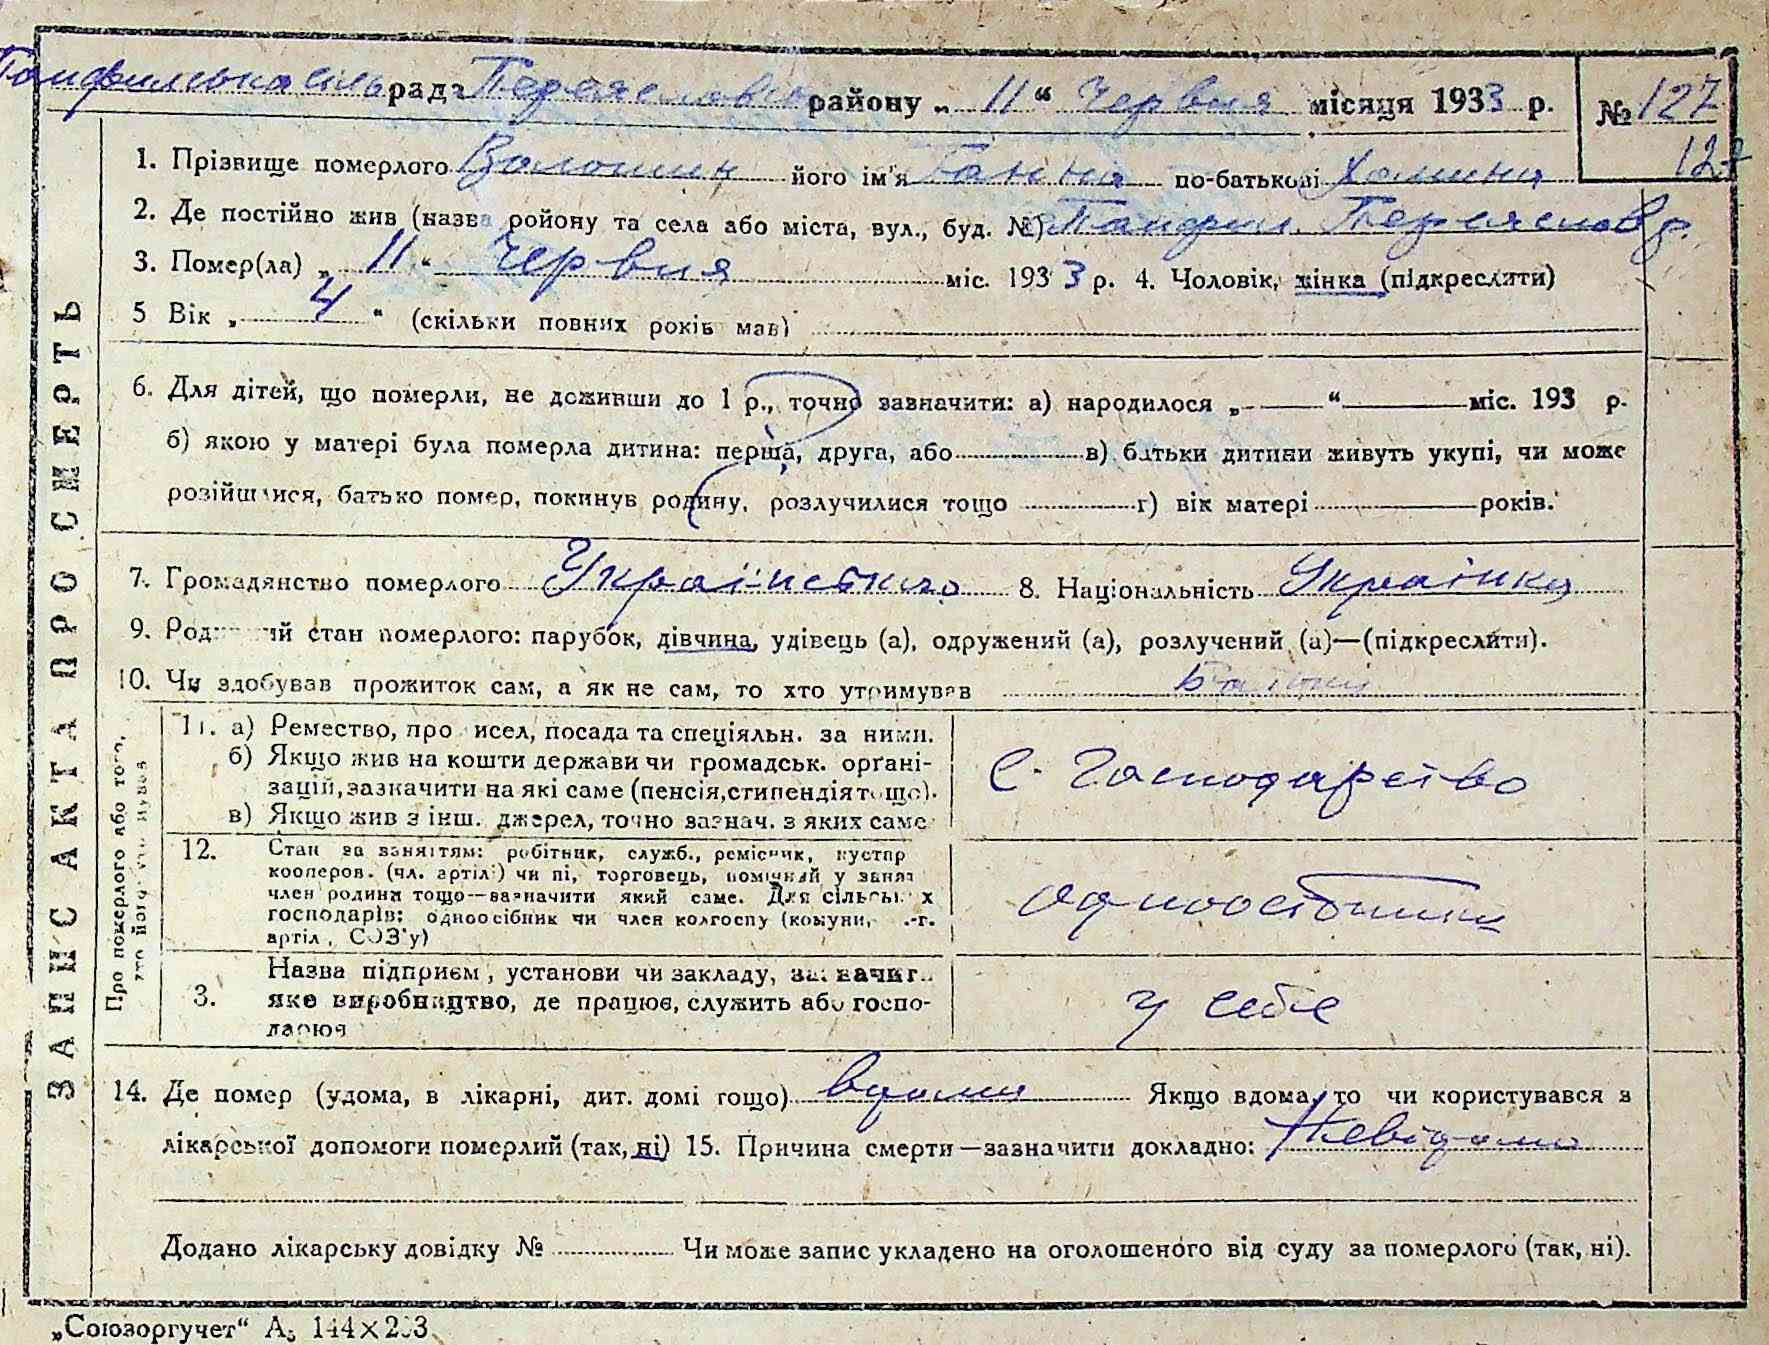 Панфильська сіль рада Переяславськ району „ 11 “ Червня місяця 1933 р. № 127
127
1. Прізвище померлого Волошин його ім'я Ганна по-батькові Хомина
2. Де постійно жив (назва ройону та села або міста, вул., буд. №) Панфил. Переяслов р.
3. Помер(ла) „ 11 “ Червня міс. 1933 р. 4. Чоловік, жінка (підкреслити)
5 Вік „ 4 “ (скільки повних років мав)
6. Для дітей, що померли, не доживши до 1 р., точно зазначити: а) народилося „—“— міс. 193 р.
б) якою у матері була померла дитина: перша, друга, або в) батьки дитини живуть укупі, чи може
розійшлися, батько помер, покинув родину, розлучилися тощо г) вік матері — років.
7. Громадянство померлого Українською 8. Національність Українка
9. Родинний стан померлого: парубок, дівчина, удівець (а), одружений (а), розлучений (а)—(підкреслити).
10. Чи здобував прожиток сам, а як не сам, то хто утримував Батьки
ЗАПИС АКТА ПРО СМЕРТЬ
Про померлого або того, хто його утримував
11. а) Ремество, про исел, посада та спеціяльн. за ними.
б) Якщо жив на кошти держави чи громадськ. орґані-
зацій, зазначити на які саме (пенсія, стипендія тощо).
в) Якщо жив з інш. джерел, точно зазнач. з яких саме
С. Господарство
12. Стан за заняттям: робітник, служб., ремісник, кустар
кооперов. (чл. артіл.) чи ні, торговець, помічний у занят
член родини тощо—зазначити який саме. Для сільських
господарів: одноосібник чи член колгоспу (комуни, с.-г.
артіл., СОЗ'у)
одноосібники
3. Назва підприєм, установи чи закладу, зазначит.
яке виробництво, де працює, служить або госпо-
дарює
у себе
14. Де помер (удома, в лікарні, дит. домі тощо) вдома Якщо вдома, то чи користувався з
лікарської допомоги померлий (так, ні) 15. Причина смерти—зазначити докладно: Невідомо
Додано лікарську довідку № Чи може запис укладено на оголошеного від суду за померлого (так, ні).
„Союзоргучет“ А5 144×203